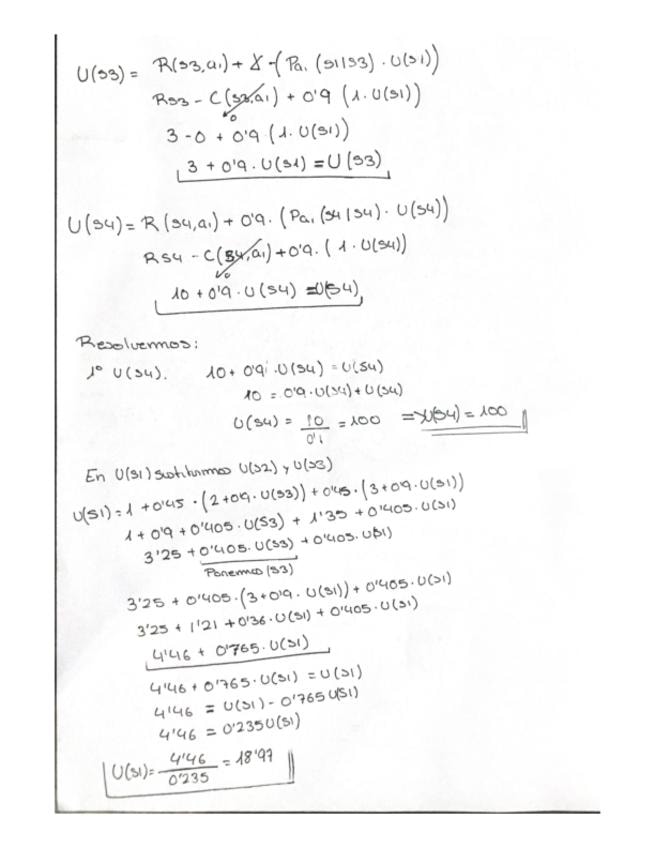 U(s3) = R(s3,a1) + γ · (Pa1 (s1|s3) · U(s1))
Rs3 - C(s3,a1) + 0'9 (1 · U(s1))
0
3 - 0 + 0'9 (1 · U(s1))
3 + 0'9 · U(s1) = U(s3)
U(s4) = R(s4,a1) + 0'9 · (Pa1 (s4|s4) · U(s4))
Rs4 - C(s4,a1) + 0'9 · (1 · U(s4))
0
10 + 0'9 · U(s4) = U(s4)
Resolvemos:
1º U(s4). 10 + 0'9 · U(s4) = U(s4)
10 = 0'9 · U(s4) + U(s4)
U(s4) = 10/0'1 = 100 => U(s4) = 100
En U(s1) sustituimos U(s2) y U(s3)
U(s1) = 1 + 0'45 · (2 + 0'9 · U(s3)) + 0'45 · (3 + 0'9 · U(s1))
1 + 0'9 + 0'405 · U(s3) + 1'35 + 0'405 · U(s1)
3'25 + 0'405 · U(s3) + 0'405 · U(s1)
Ponemos (s3)
3'25 + 0'405 · (3 + 0'9 · U(s1)) + 0'405 · U(s1)
3'25 + 1'21 + 0'36 · U(s1) + 0'405 · U(s1)
4'46 + 0'765 · U(s1)
4'46 + 0'765 · U(s1) = U(s1)
4'46 = U(s1) - 0'765 U(s1)
4'46 = 0'235 U(s1)
U(s1) = 4'46/0'235 = 18'97